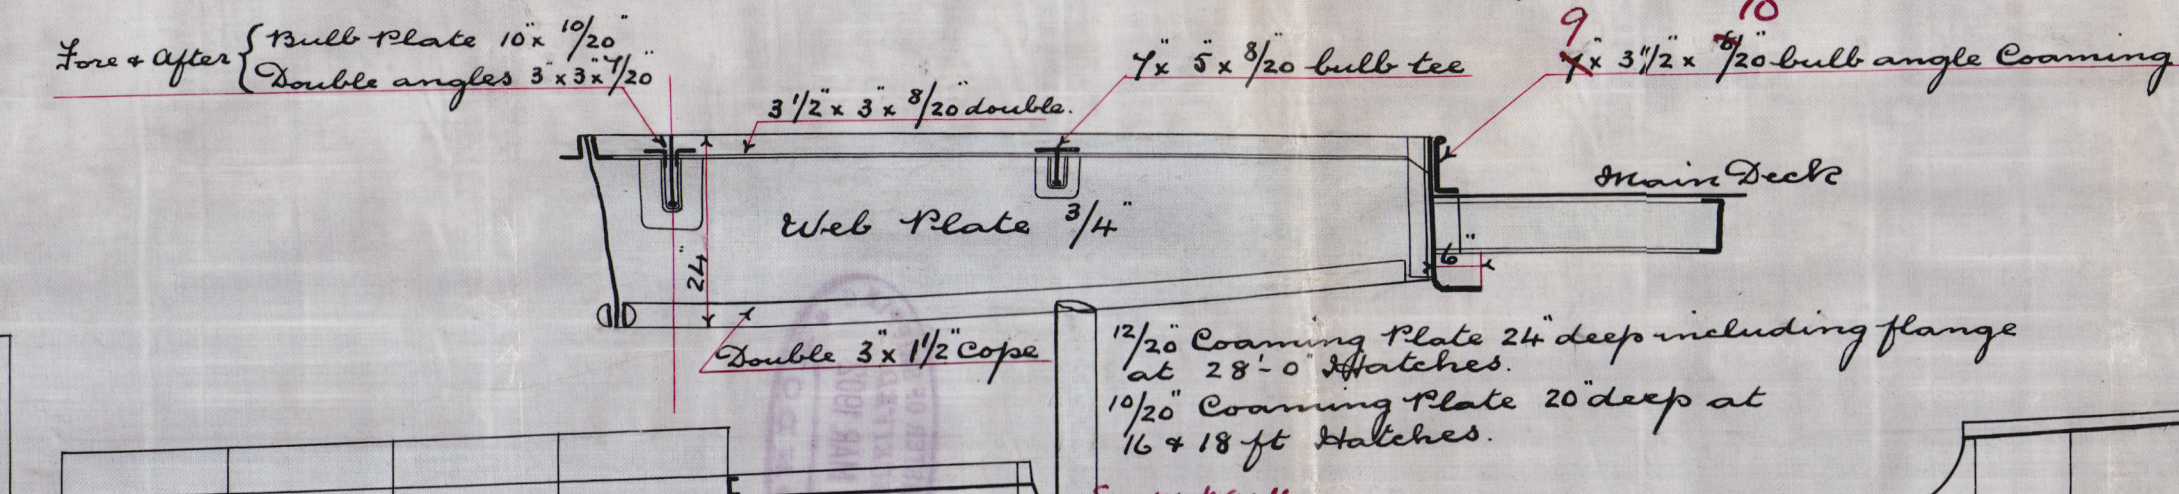 Fore & After { Bulb Plate 10" x 10/20"
Double angles 3" x 3" x 7/20"
3 1/2" x 3" x 8/20" double.
7" x 5" x 8/20 bulb tee
9 10
7" x 3 1/2" x /20" bulb angle Coaming
Main Deck
Web Plate 3/4"
24"
6"
Double 3" x 1 1/2" Cope
12/20" Coaming Plate 24" deep including flange
at 28'-0" Hatches.
10/20" Coaming Plate 20" deep at
16 & 18 ft Hatches.
MAR 1902